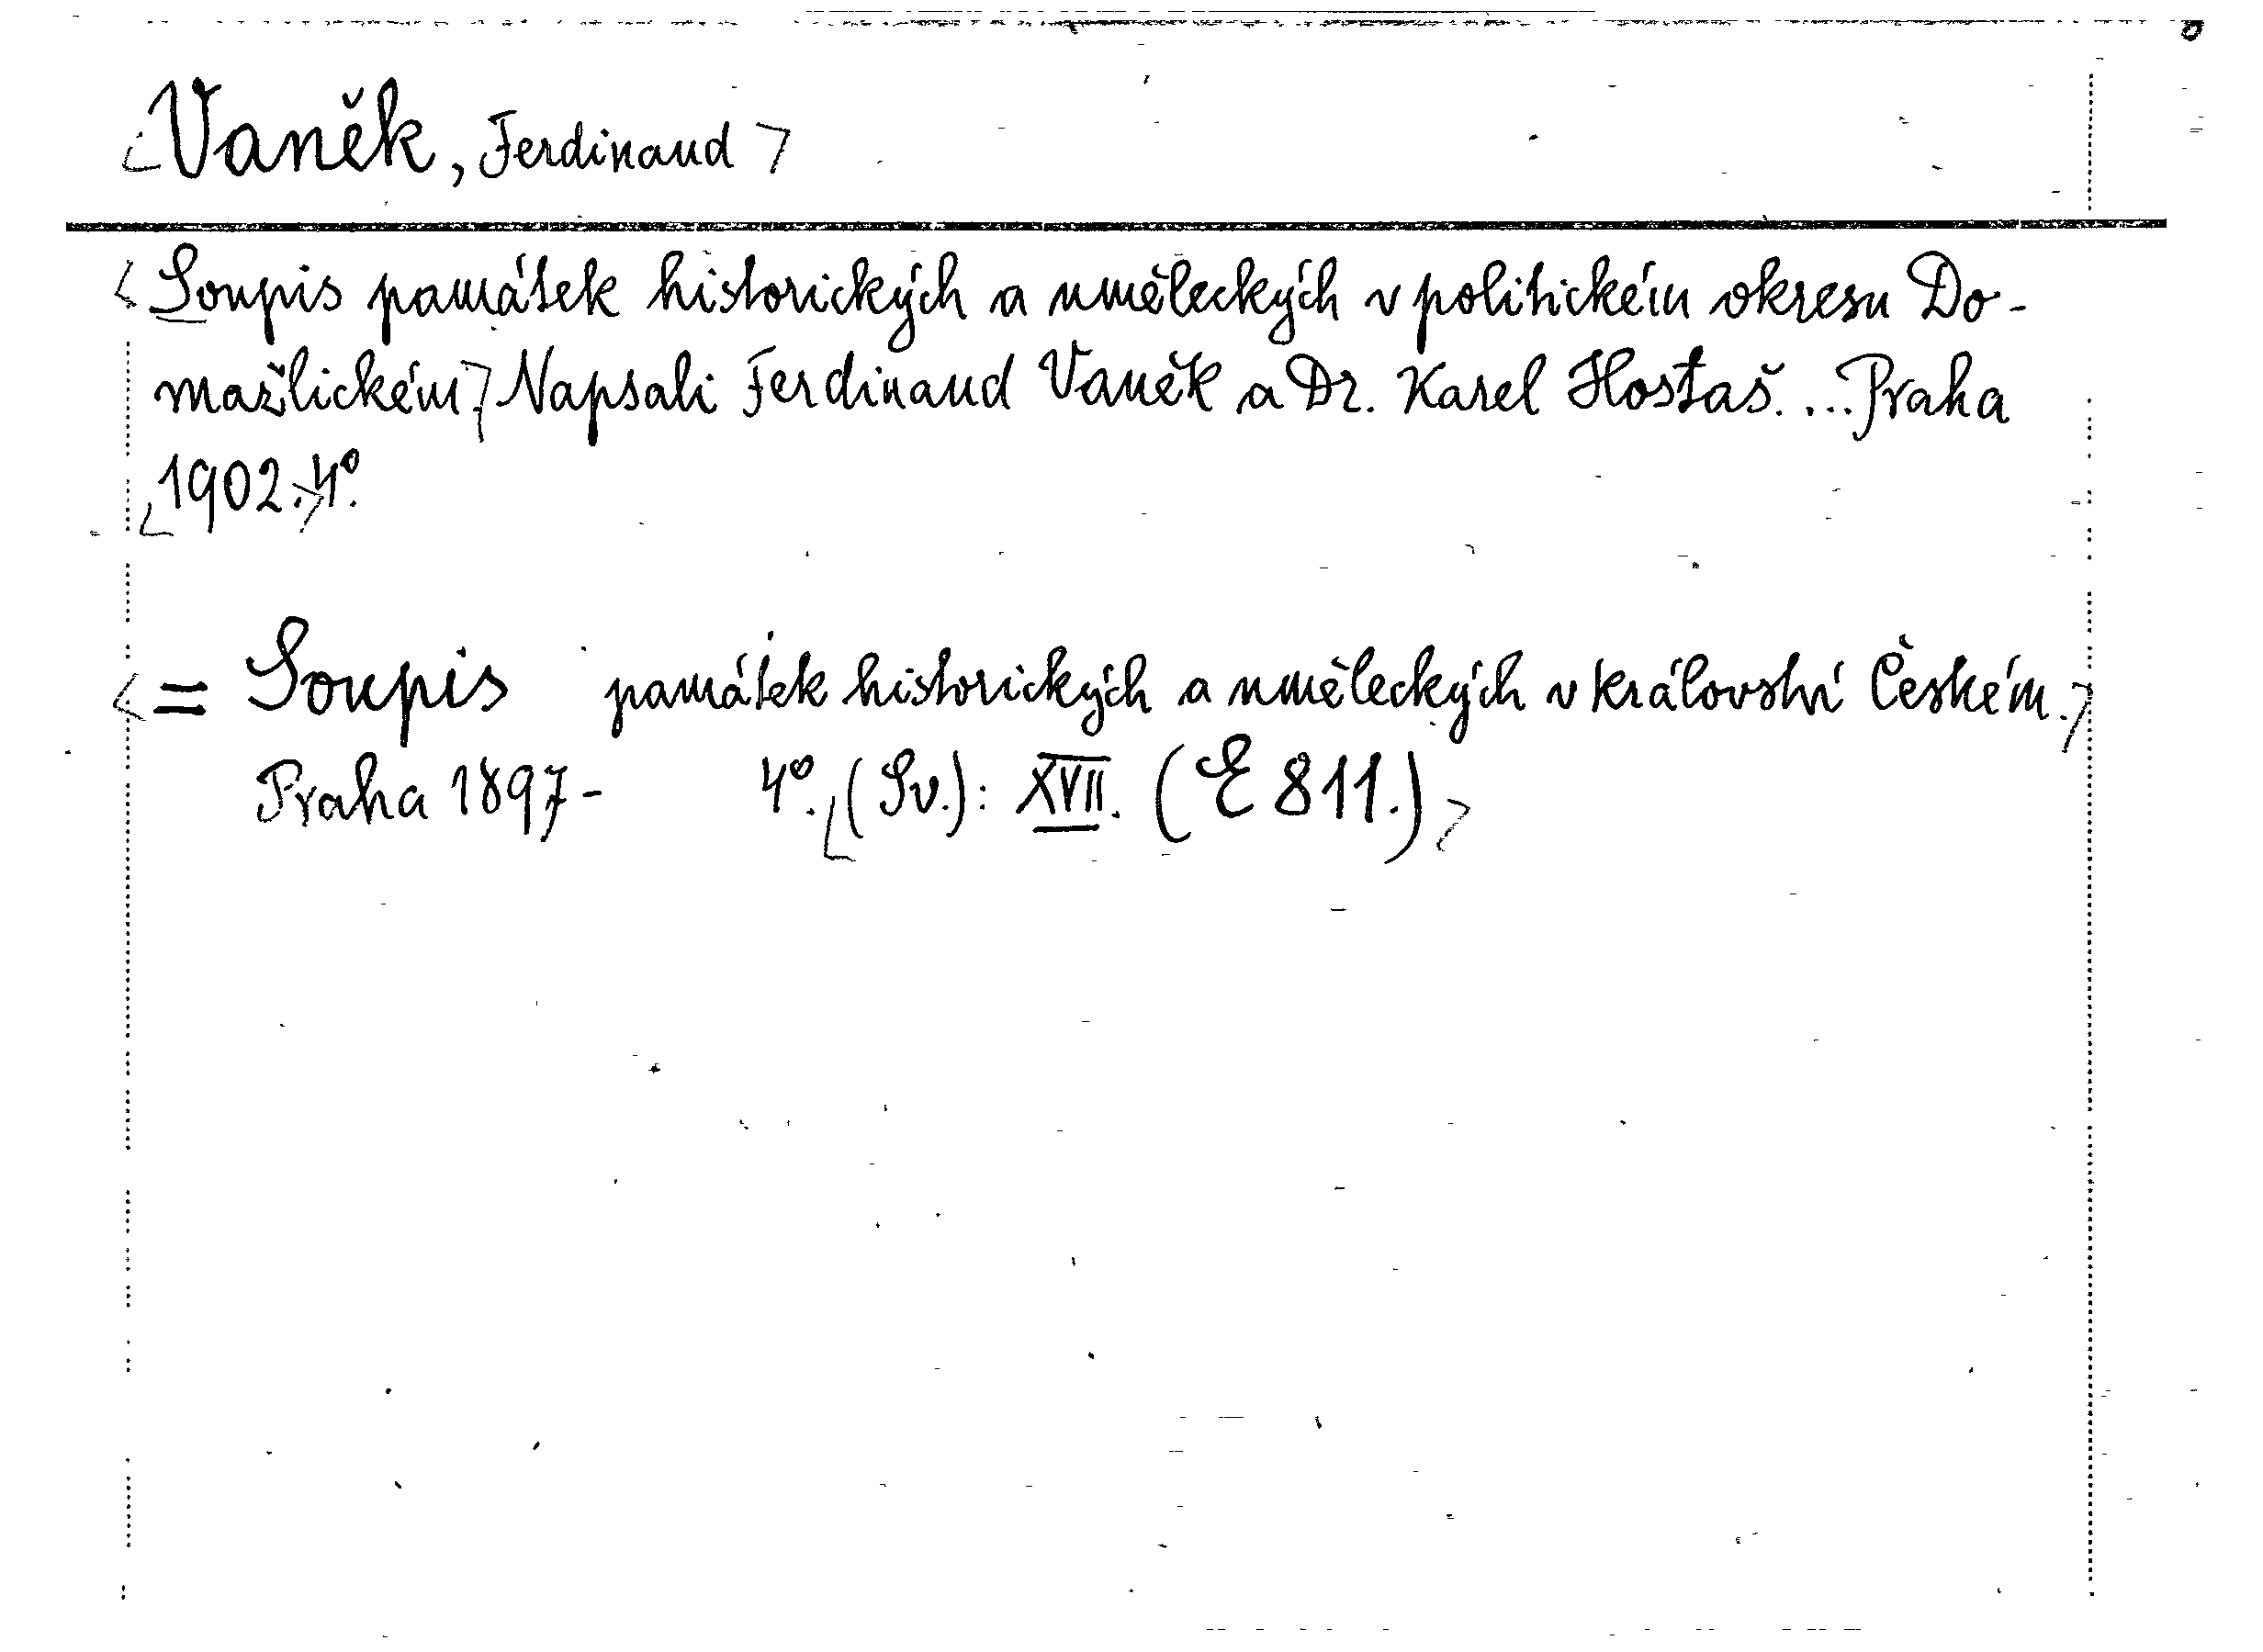 Vaněk, Ferdinand
Soupis památek historických a uměleckých v politickém okresu Do-
mažlickém. Napsali Ferdinand Vaněk a Dr. Karel Hostaš. ... Praha
1902. 4°.
= Soupis památek historických a uměleckých v království Českém.
Praha 1897- 4°. (Sv.): XVII. (E 811.)